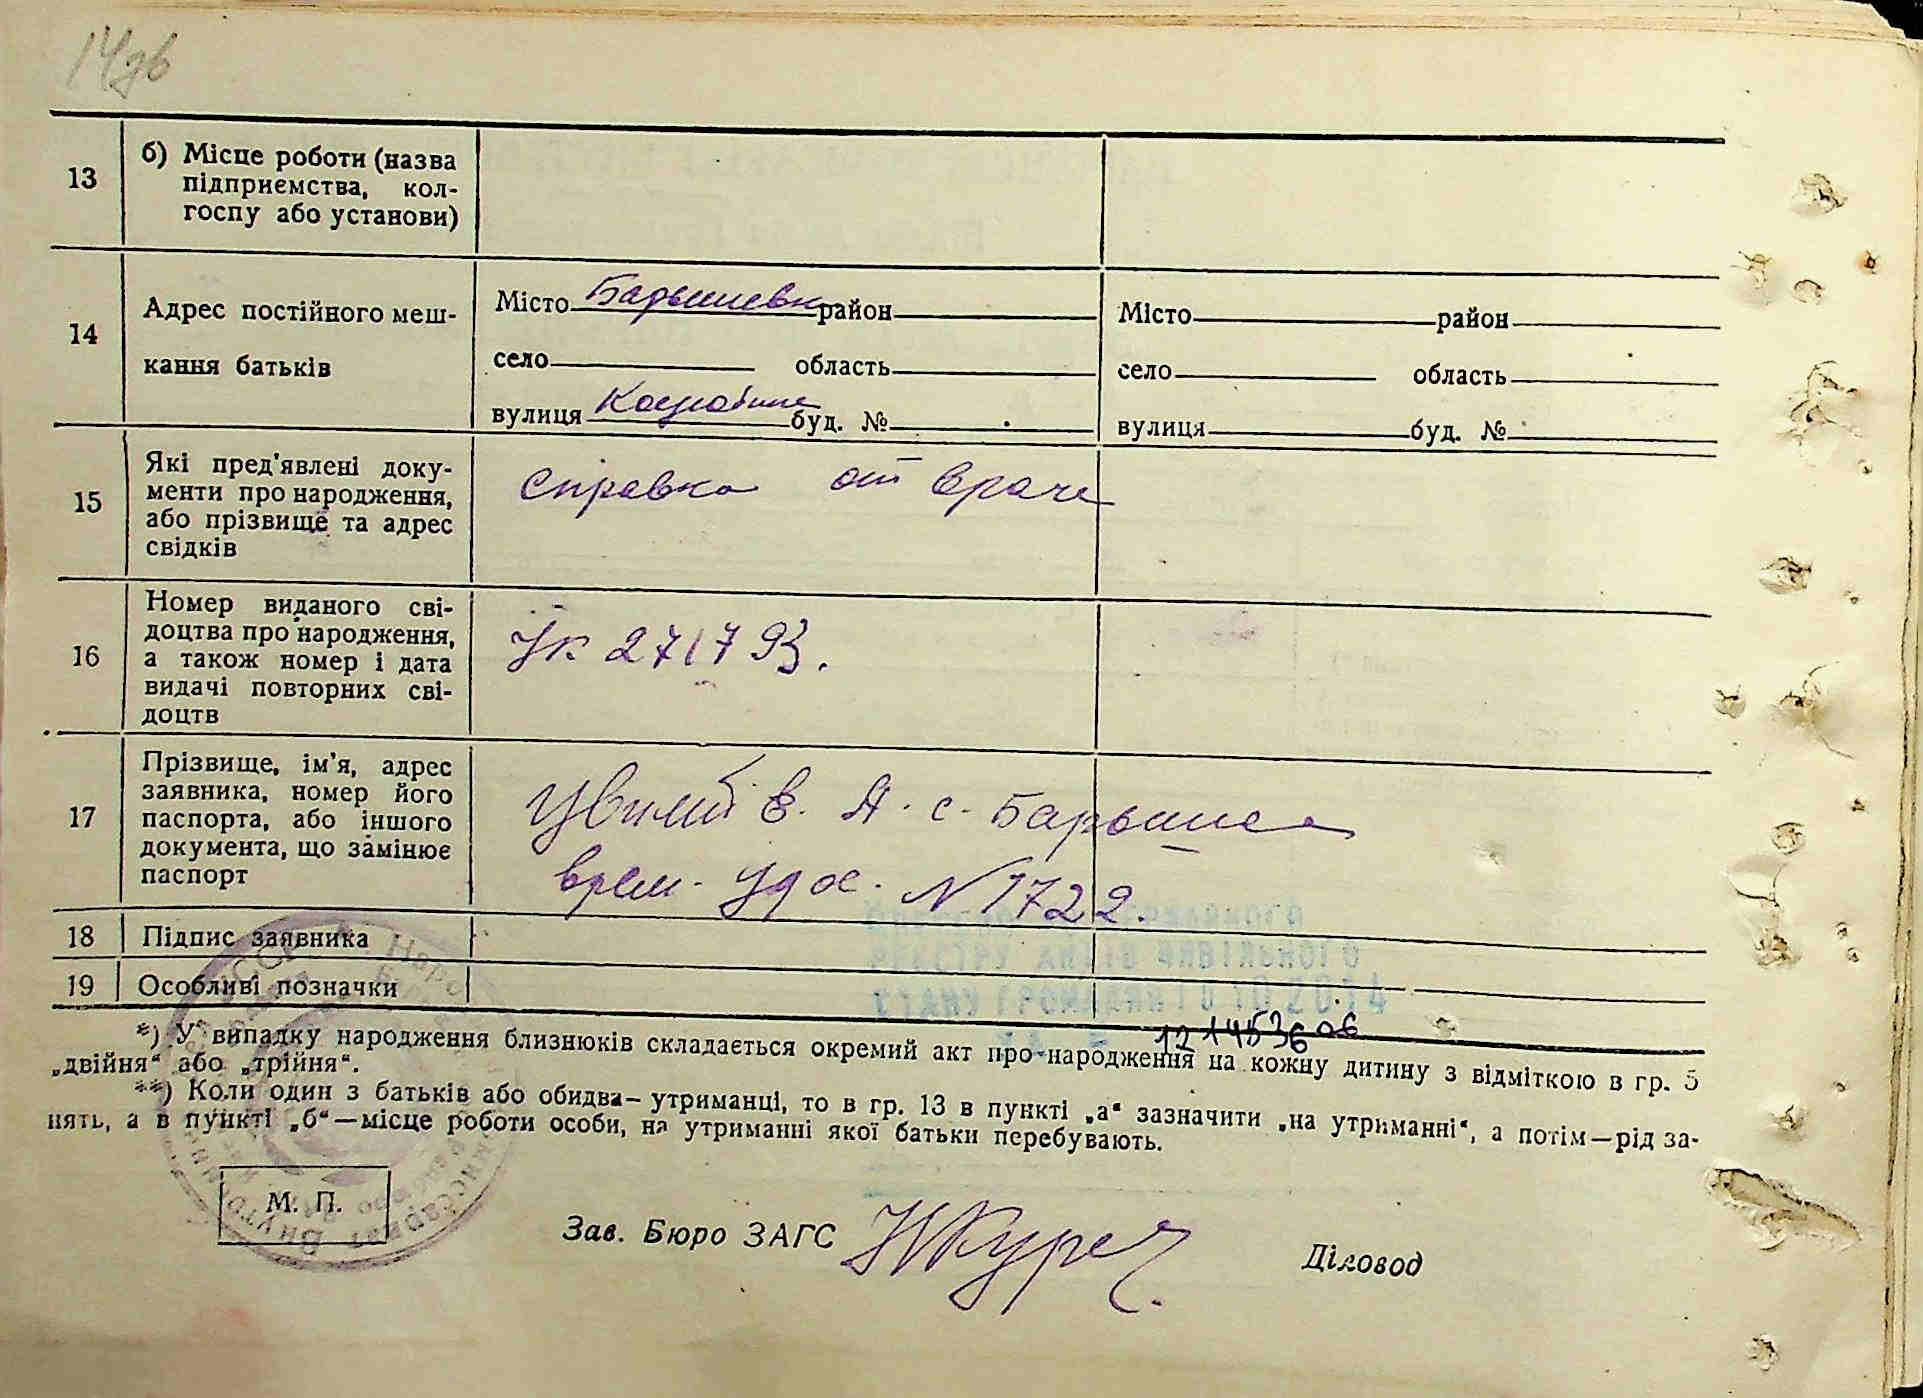 14зв
13
б) Місце роботи (назва
підприємства, кол-
госпу або установи)
14
Адрес постійного меш-
кання батьків
Місто Барышевка район
село область
вулиця буд. №
Місто район
село область
вулиця буд. №
15
Які пред'явлені доку-
менти про народження,
або прізвище та адрес
свідків
Справка от врача
16
Номер виданого сві-
доцтва про народження,
а також номер і дата
видачі повторних сві-
доцтв
Ук 271793.
17
Прізвище, ім'я, адрес
заявника, номер його
паспорта, або іншого
документа, що замінює
паспорт
В. Я. с. Барыше
врем. удос. N 1722.
18 Підпис заявника
19 Особливі позначки
РЕЄСТРУ АКТІВ ЦИВІЛЬНОГО
СТАНУ ГРОМАДЯН 10 10 2014
*) У випадку народження близнюків складається окремий акт про народження на кожну дитину з відміткою в гр. 5
„двійня“ або „трійня“.
**) Коли один з батьків або обидва — утриманці, то в гр. 13 в пункті „а“ зазначити „на утриманні“, а потім — рід за-
нять, а в пункті „б“ — місце роботи особи, на утриманні якої батьки перебувають.
М. П.
Зав. Бюро ЗАГС
Діловод